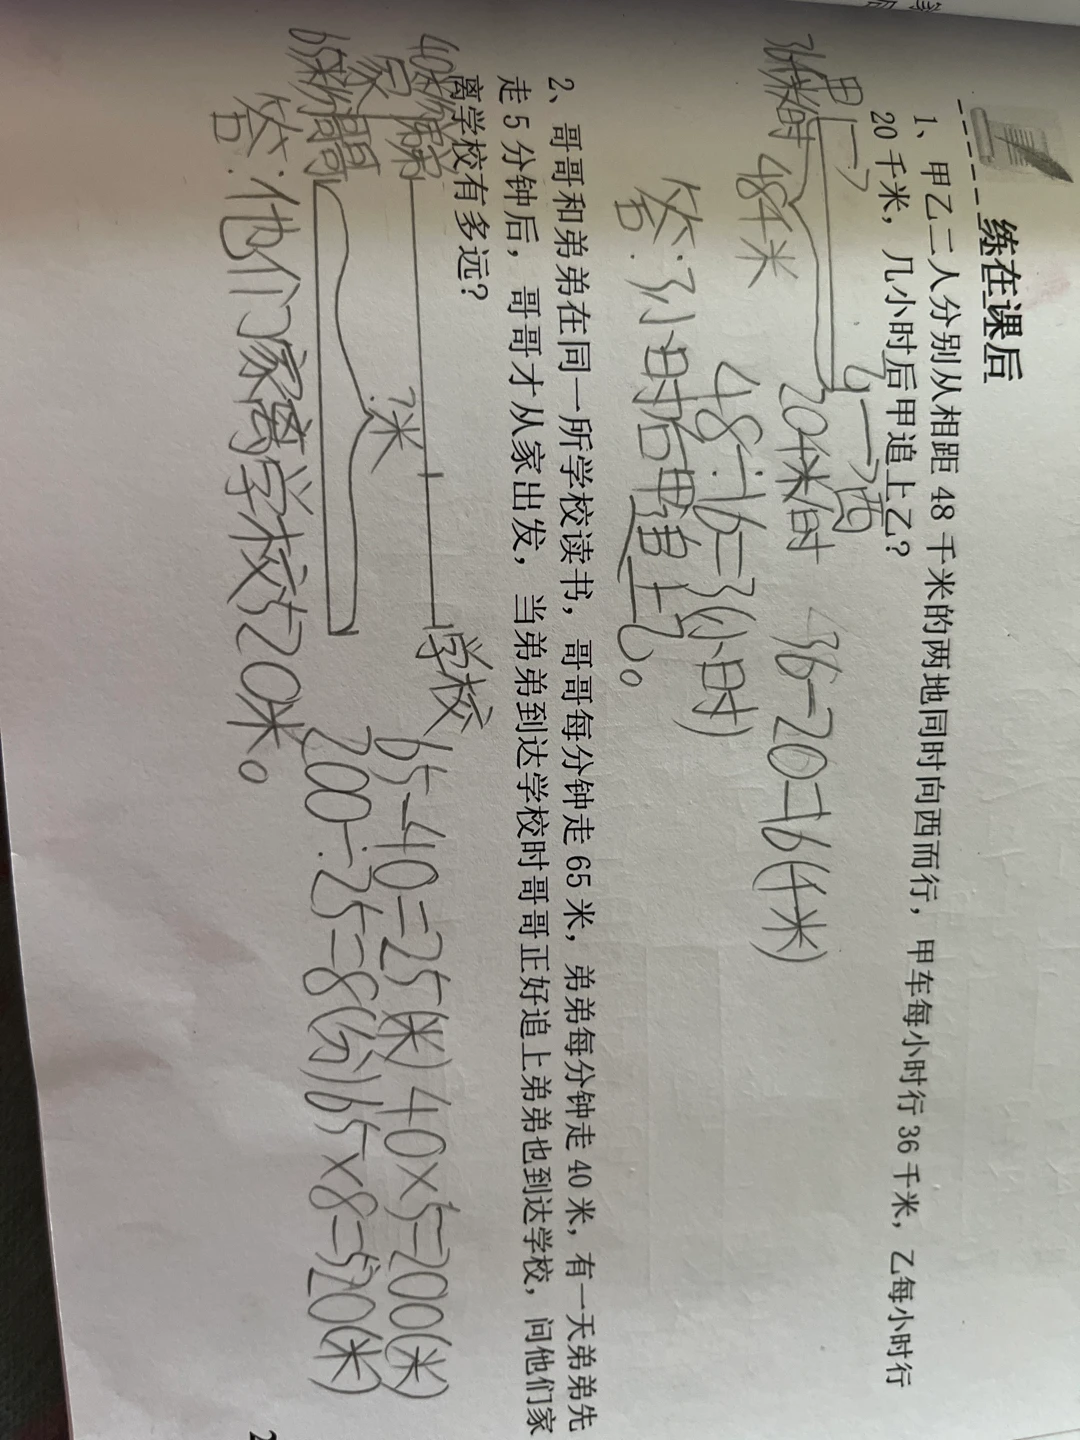 练在课后
1、甲乙二人分别从相距 48 千米的两地同时向西而行，甲车每小时行 36 千米，乙每小时行
20 千米，几小时后甲追上乙？
甲→
乙→西
36千米/时
20千米/时
36-20=16(千米)
48千米
48÷16=3(小时)
答:3小时后甲追上乙。
2、哥哥和弟弟在同一所学校读书，哥哥每分钟走 65 米，弟弟每分钟走 40 米，有一天弟弟先
走 5 分钟后，哥哥才从家出发，当弟弟到达学校时哥哥正好追上弟弟也到达学校，问他们家
离学校有多远？
40米/分
弟弟
学校
家
?米
65-40=25(米) 40×5=200(米)
65米/分
哥哥
200÷25=8(分) 65×8=520(米)
答:他们家离学校520米。
2